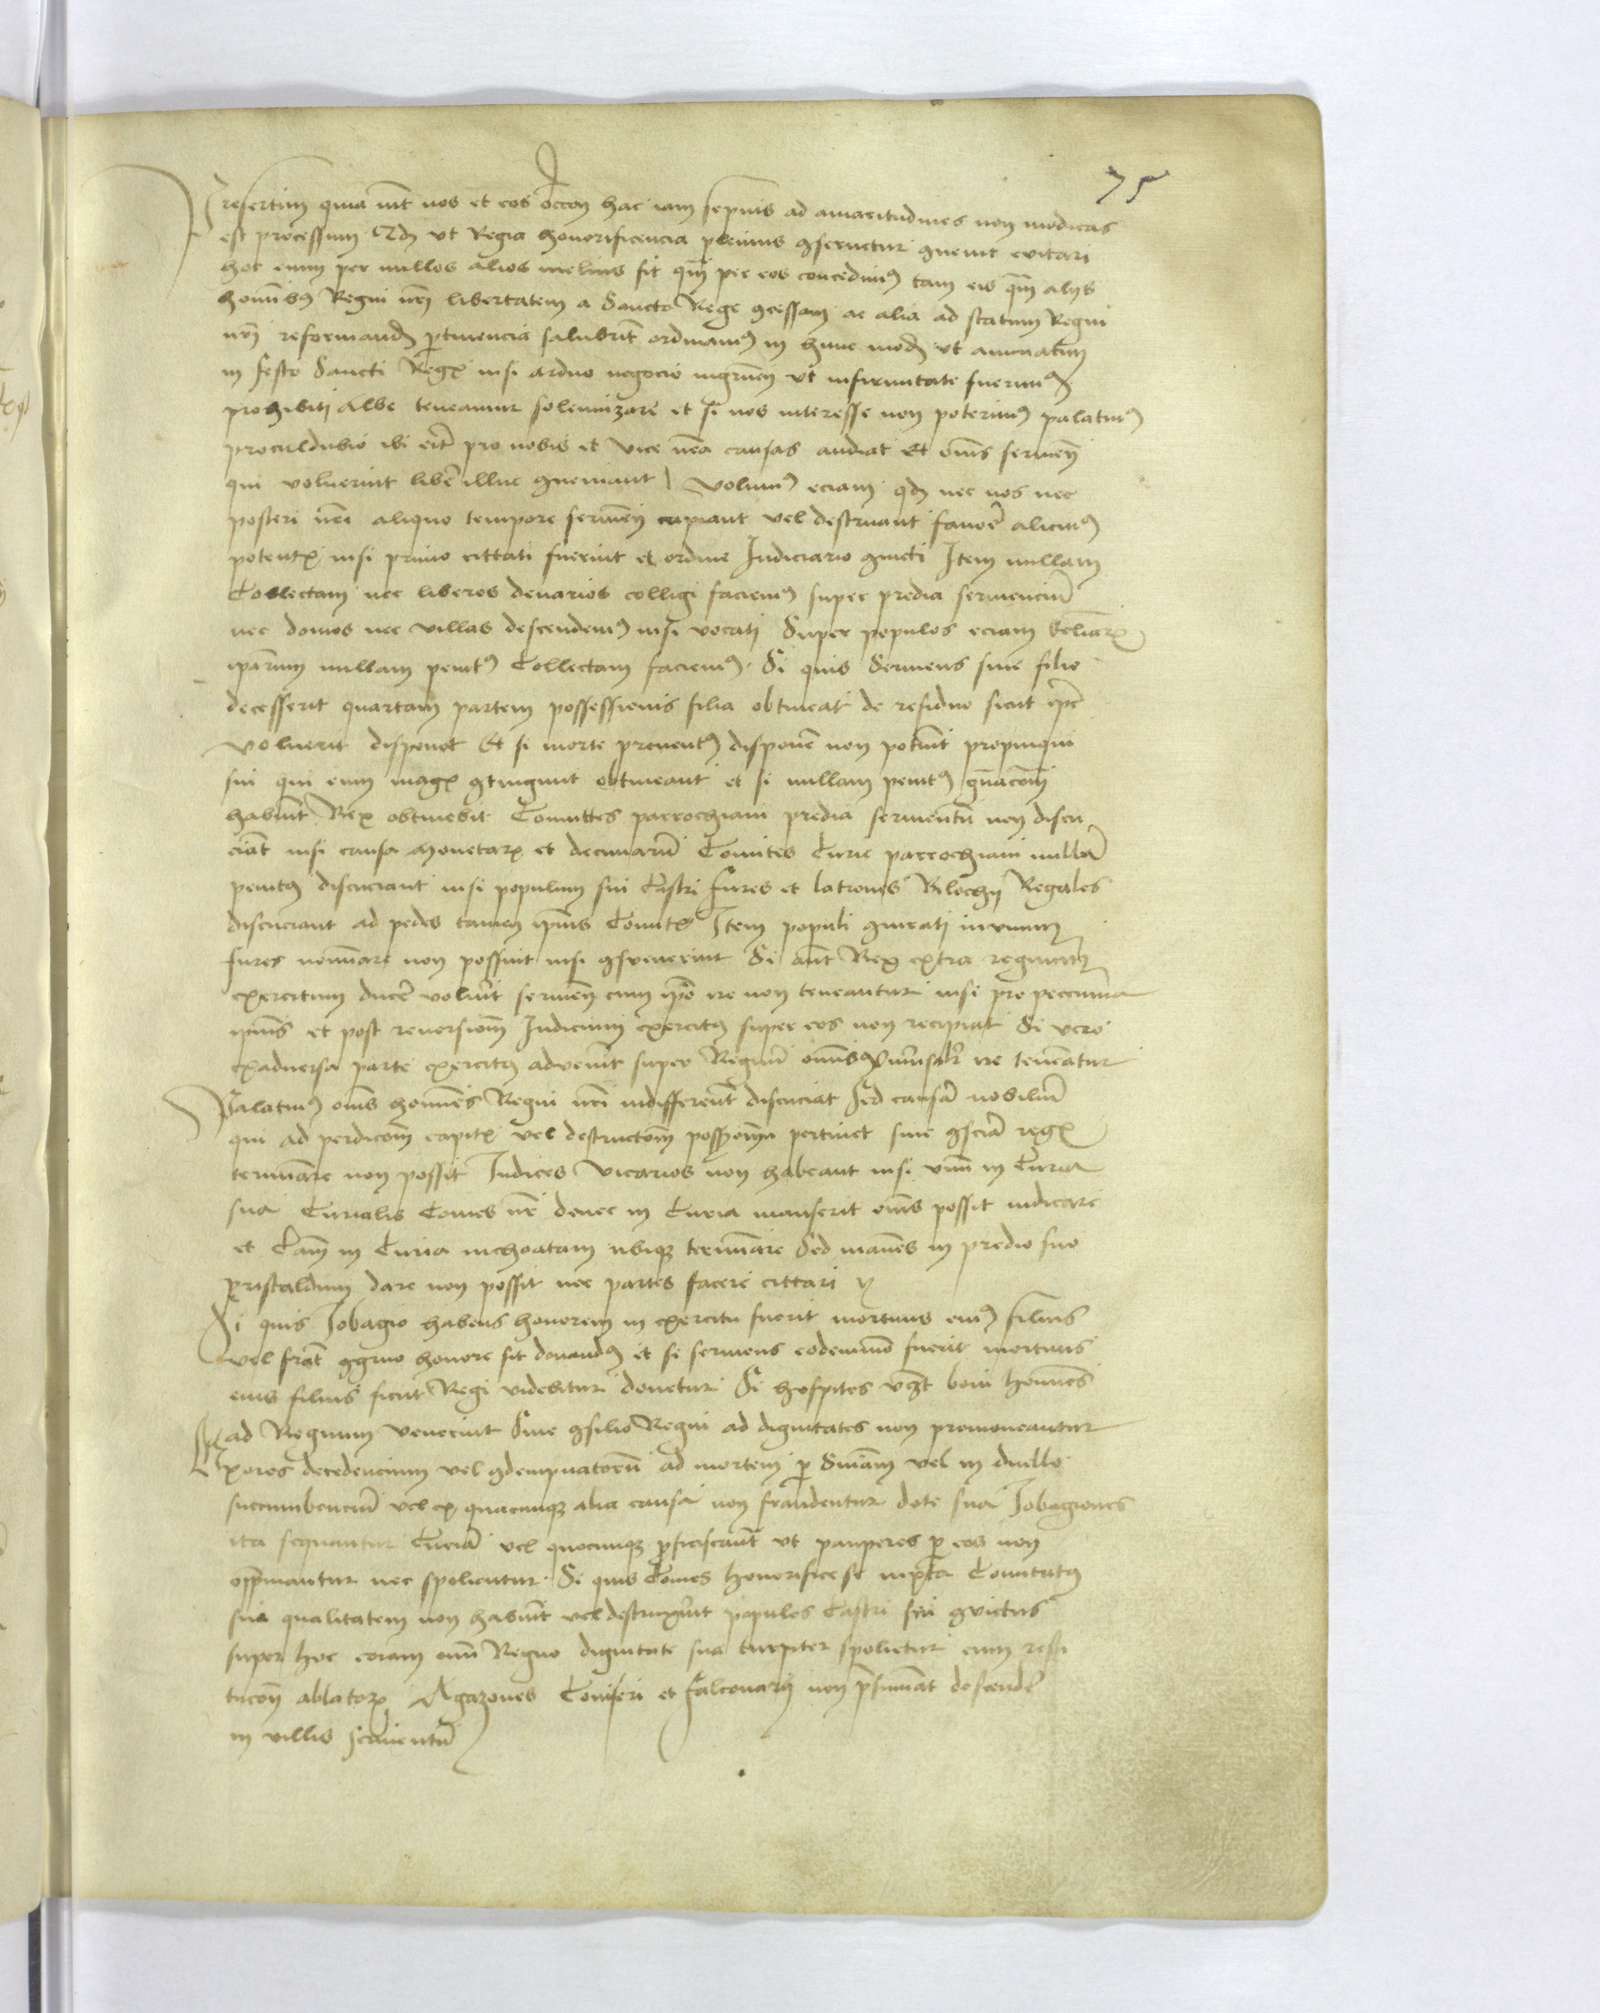 75
Presertim quia int nos et eos occon hac iam sepius ad amaritudines non modicas
est processum Qd ut Regia honorificencia plenius gseruetur guenit euitari
hoc enim per nullos alios melius fit qm per eos concedimus tam eis qm alijs
hominibus Regni nri libertatem a Sancto Rege gcessam ac alia ad statum Regni
nri reformand ptinencia salubrit ordinamus in hunc mod ut annuatim
in festo Sancti Regis nisi arduo negocio ingruen ut infirmitate fuerimus
prohibiti Albe teneamur solemnizare et si nos interesse non poterimus palatinus
proculdubio ibi erit pro nobis et vice nra causas audiat Et omnes seruien
qui voluerint libere illuc gueniant Volumus eciam qd nec nos nec
posteri nri aliquo tempore seruien capiant vel destruant fauore alicuius
potentis nisi primo cittati fuerint et ordine Iudiciario guicti Item nullam
Collectam nec liberos denarios colligi faciemus super predia seruiencium
nec domos nec villas descendemus nisi vocati Super populos eciam
ipsarum nullam penitus Collectam faciemus. Si quis Seruiens sine filio
decesserit quartam partem possessionis filia obtineat de residuo sicut ipse
voluerit disponat Et si morte preuentus disponere non poterit propinqui
sui qui eum magis gtingunt obtineant et si nullam penitus gnacom
habuit Rex obtinebit Comittes parrochiani predia seruientum non discu
ciat nisi causa Monetar et decimarum Comites Curie parrochiani nullum
penitus discuciant nisi populum sui Castri fures et latrones Bilochij Regales
discuciant ad pedes tamen ipsius Comitis Item populi guirati in vnum
fures nominare non possint nisi gsueuerint Si aut Rex extra regnum
exercitum ducere voluerit seruien cum ipso ire non teneantur nisi pro peccunia
ipsius et post reuersionem Iudicium exercitus super eos non recipiat Si vero
ex aduersa parte exercitus aduenerit super Regnum omnes vniuersaliter ire teneatur
Palatinus omnes homines Regni nri indifferent discuciat Sed causam nobilium
qui ad perdicom capitis vel destructom possionum pertinet sine gscia regis
terminare non possit Iudices vicarios non habeant nisi vnum in Curia
sua Curialis Comes nr donec in Curia manserit omnes possit iudicare
et Cam in Curia inchoatam ubique terminare Sed manens in predio suo
Pristaldum dare non possit nec partes facere cittari
Si quis Iobagio habens honorem in exercitu fuerit mortuus eius filius
vel frat ggruo honore sit donandus et si seruiens eodem modo fuerit mortuus
eius filius sicut Regi videbitur donetur Si hospites boni homines
ad Regnum venerint Sine gsilio Regni ad dignitates non promoueantur
Uxores decedencium vel gdempnatorum ad mortem per Sniam vel in duello
succumbencium vel ex quacumque alia causa non fraudentur dote sua Iobagiones
ita sequantur Curiam vel quocumque proficiscant ut pauperes per eos non
opprimantur nec spolientur. Si quis Comes honorifice se iuxta Comitatus
sui qualitatem non habuit vel destruxerit populos Castri sui guictus
super hoc coram omni Regno dignitate sua turpiter spolietur cum resti
tucon ablator Agazones Caniferi et falconarij non presumant descendere
in villis seruientum